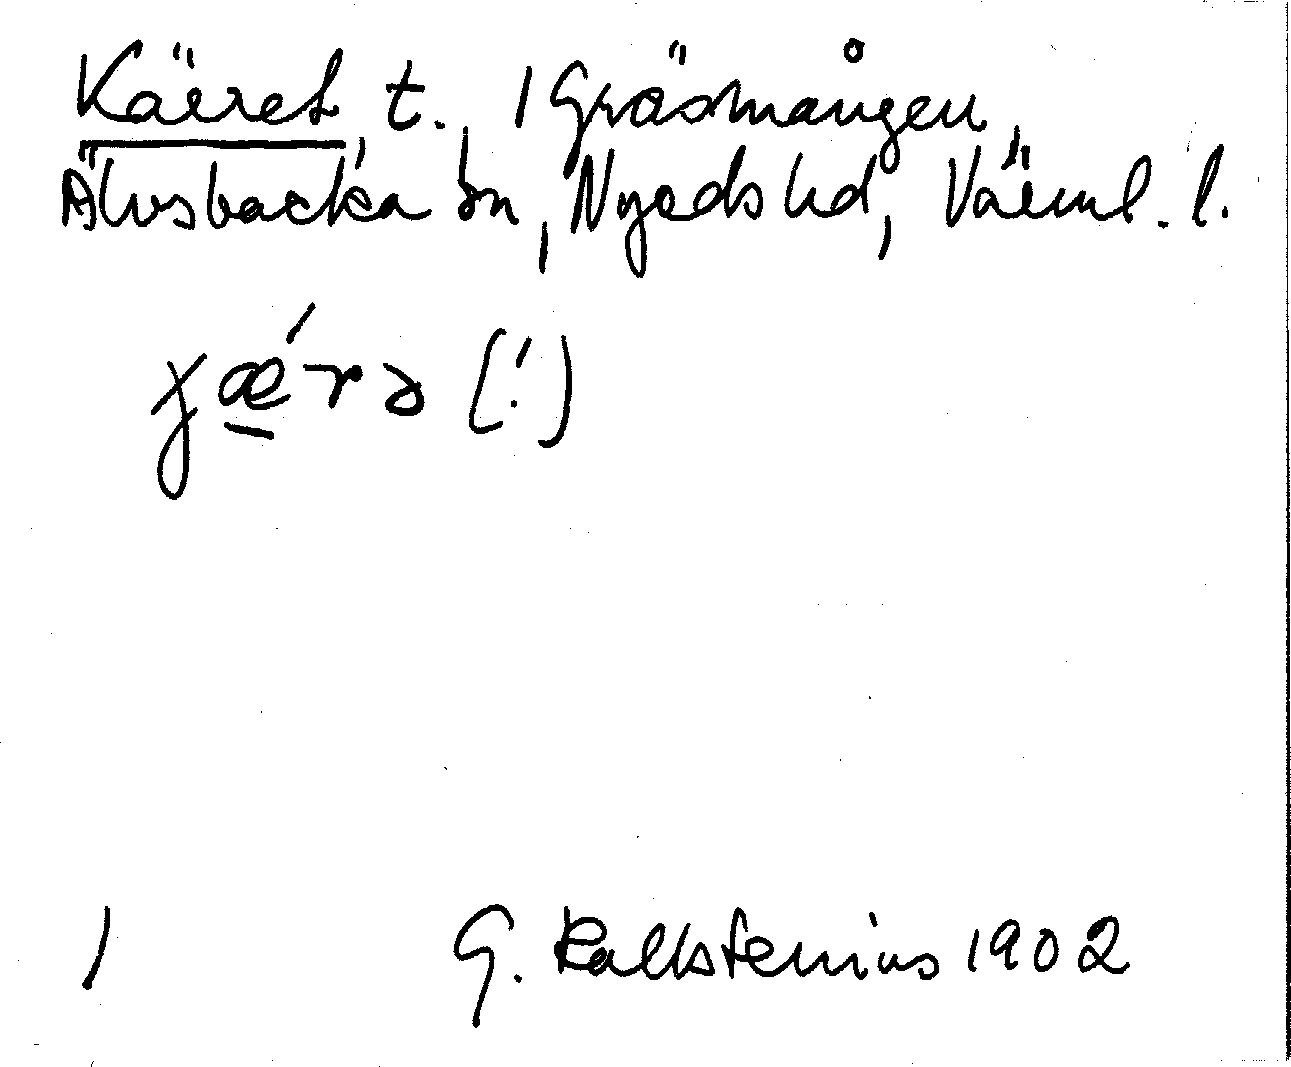 Kärret, t., 1 Gräsmången,
Älvsbacka sn, Nyeds hd, Värml. l.
(!)
1 G. Kallstenius 1902